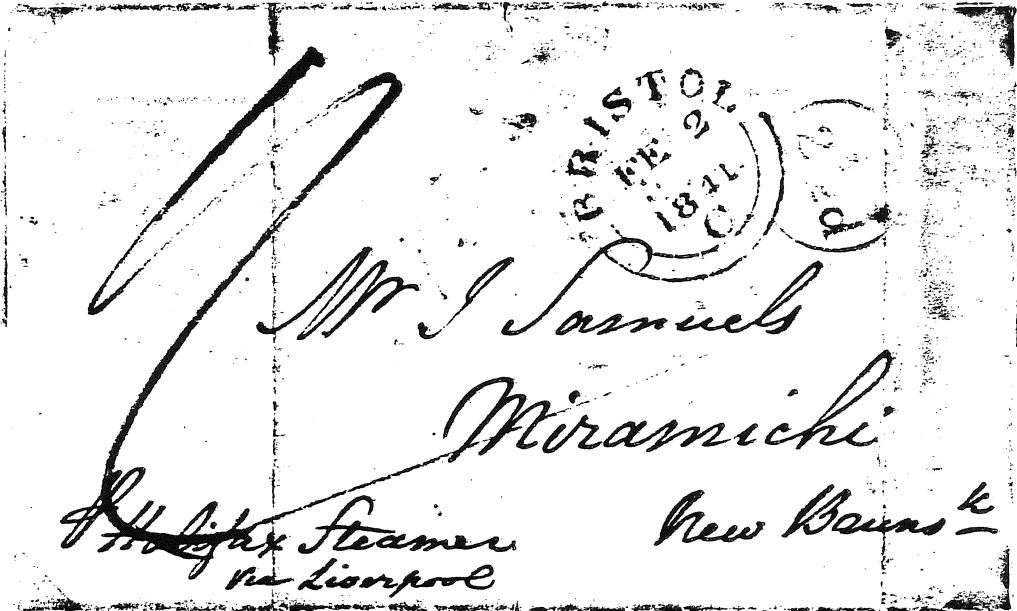 BRISTOL
FE 2
1841
C
P
Mr J Samuels
Miramichi
New Bruns k
P Halifax Steamer
via Liverpool